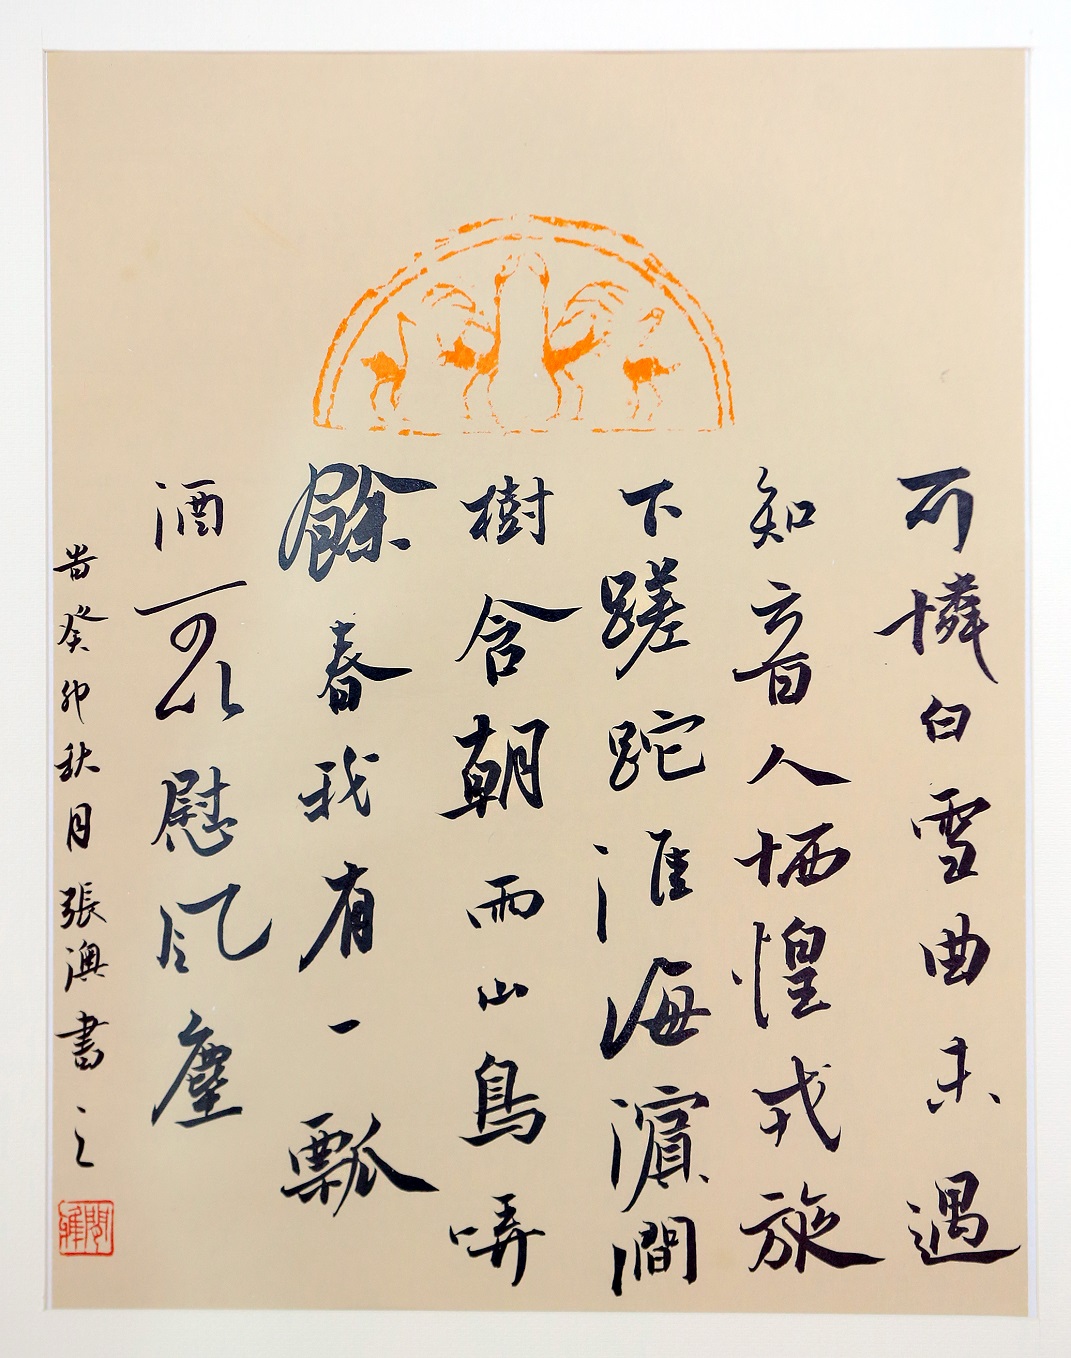 可憐白雪曲未遇
知音人恓惶戎旅
下蹉跎淮海濱澗
樹含朝雨山鳥哢
餘春我有一瓢
酒可以慰風塵
旹癸卯秋月張澳書之